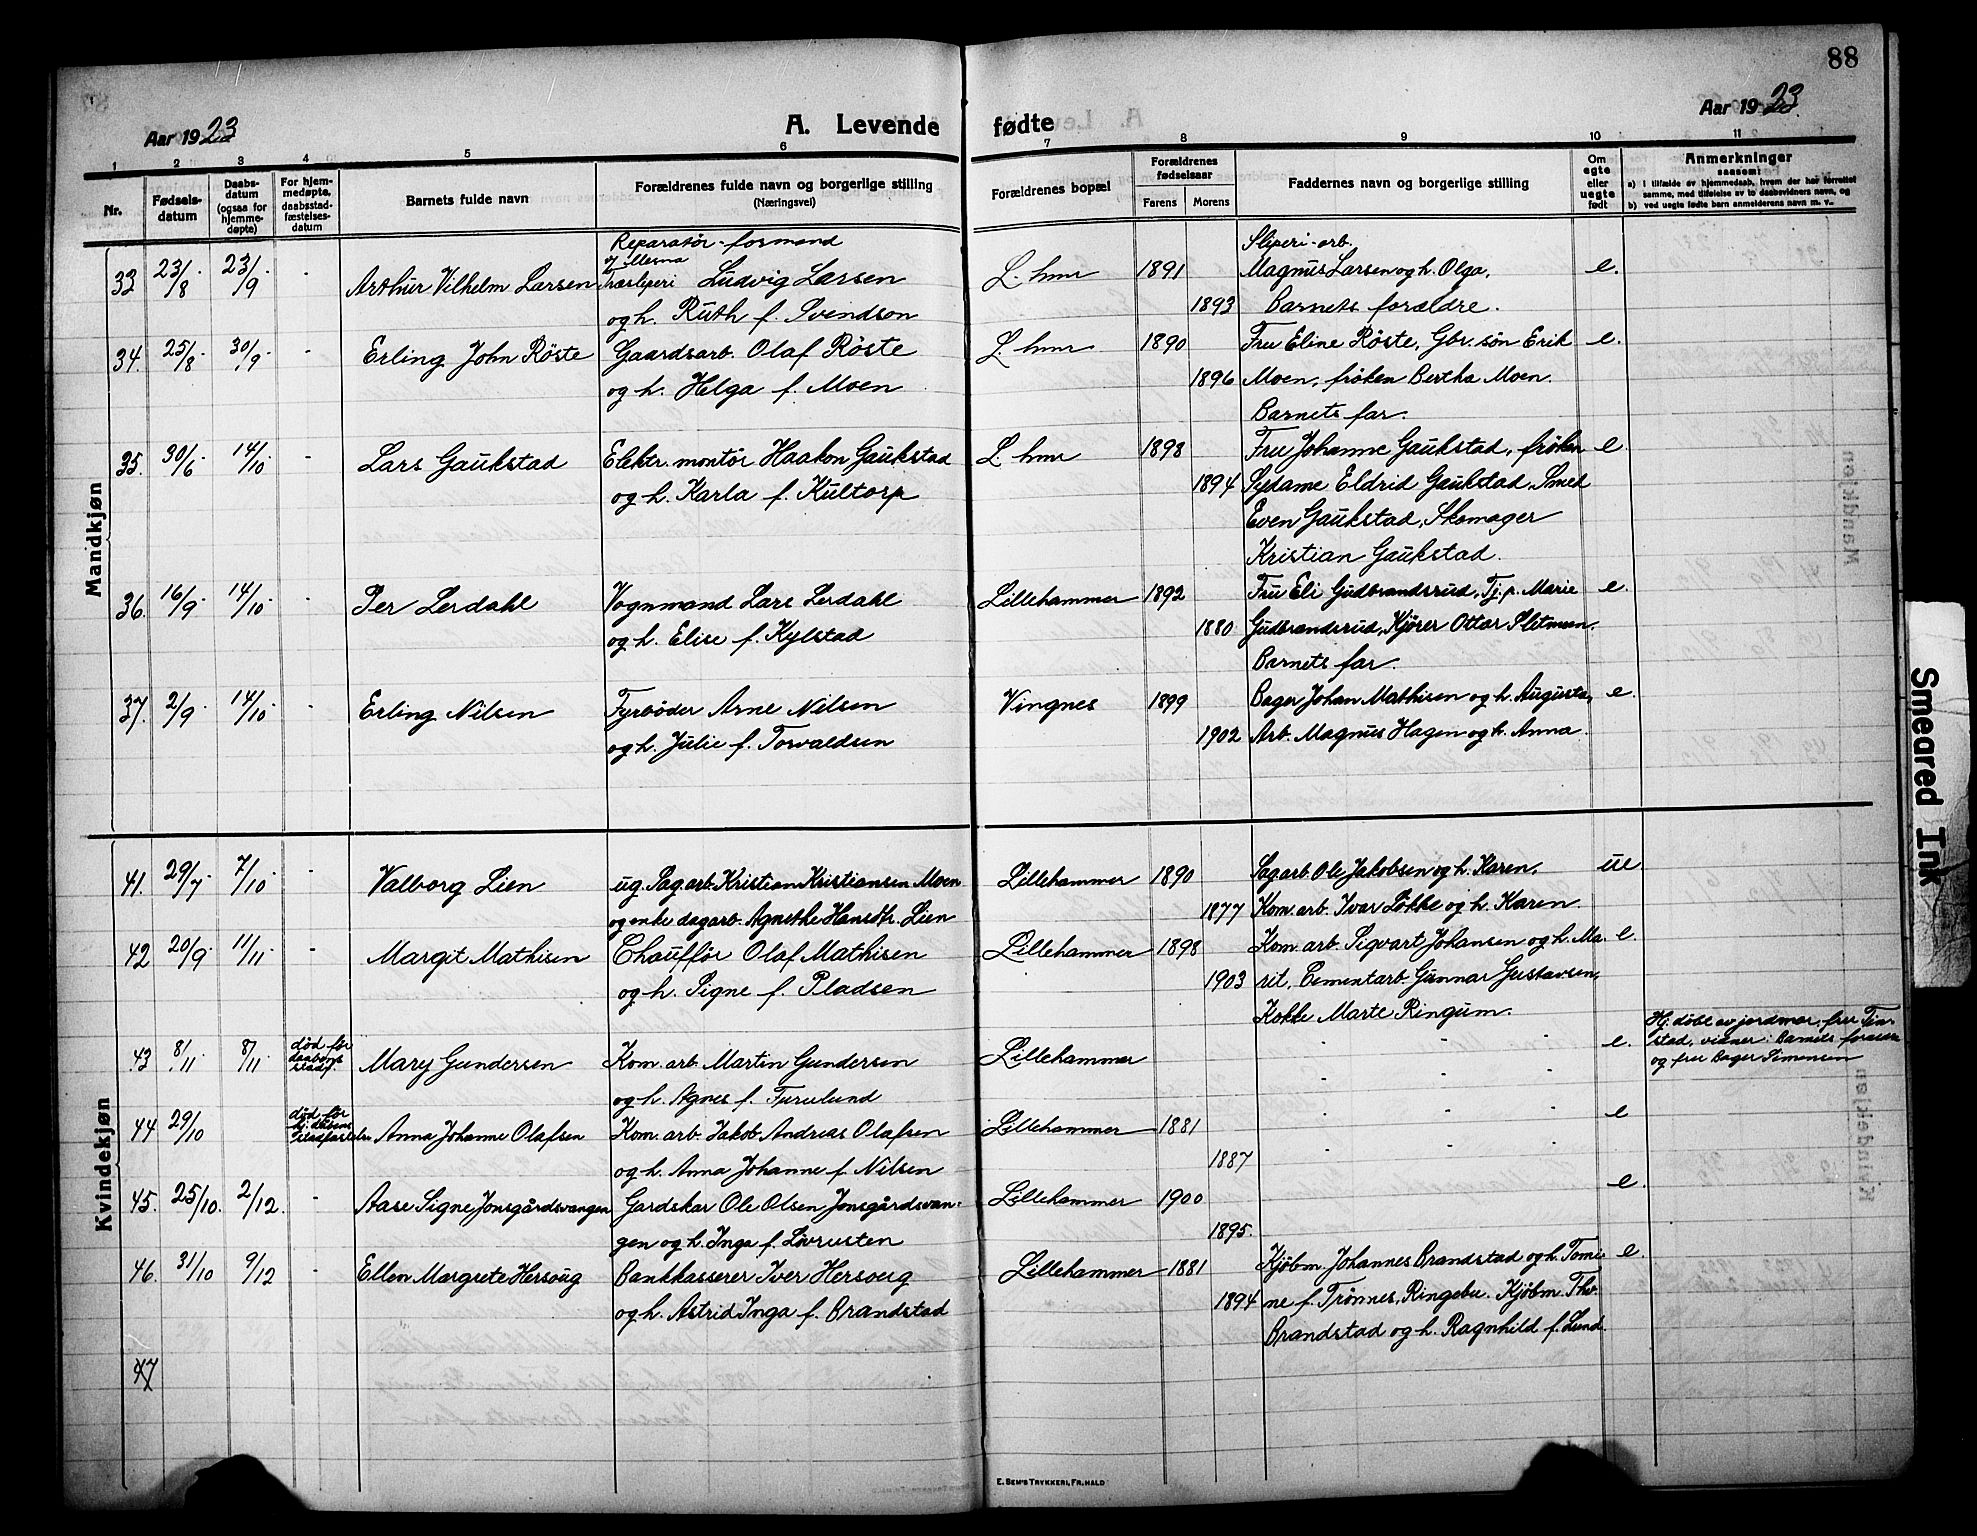 88
Aar 1923
A. Levende fødte
Aar 1923.
1 2 3 4 5 6 7 8 9 10 11
Nr.
Fødsels-
datum
Daabs-
datum
(ogsaa for
hjemme-
døpte)
For hjem-
medøpte,
daabsstad-
fæstelses-
datum
Barnets fulde navn
Forældrenes fulde navn og borgerlige stilling
(Næringsvei)
Forældrenes bopæl
Forældrenes
fødselsaar
Farens Morens
Faddernes navn og borgerlige stilling
Om
ægte
eller
uegte
født
Anmerkninger
saasom:
a) i tilfælde av hjemmedaab, hvem der har forrettet
samme, med tilføielse av to daabsvidners navn, og
b) ved uegte fødte barn anmelderens navn m. v.
Mandkjøn
Reparatør-formand Sliperi-arb.
33 23/8 23/9 - Arthur Vilhelm Larsen Træsliperi Ludvig Larsen L. hmr 1891 Magnus Larsen og h. Olga, e.
og h. Ruth f. Svendson 1893 Barnets forældre.
34. 25/8 30/9 - Erling John Röste Gaardsarb. Olaf Röste L. hmr 1890 Fru Eline Röste, Gbr. sön Erik e.
og h. Helga f. Moen 1896 Moen, fröken Bertha Moen.
Barnets far.
35. 30/6 14/10 - Lars Gaukstad Elektr. montör Haakon Gaukstad L. hmr 1898 Fru Johanne Gaukstad, fröken e.
og h. Karla f. Kultorp 1894 Sydame Eldrid Gaukstad, Smed
Even Gaukstad, Skomager
Kristian Gaukstad.
36. 16/9 14/10 - Per Lerdahl Vognmand Lars Lerdahl Lillehammer 1892 Fru Eli Gudbrandsrud, Tj.p. Marie e.
og h. Elise f. Kylstad 1880 Gudbrandsrud, Kjører Ottar Sletmoen.
Barnets far.
37. 2/9 14/10 - Erling Nilsen Fyrböder Arne Nilsen Vingnes 1899 Bager Johan Mathisen og h. Augusta, e.
og h. Julie f. Torvaldsen 1902 Arb. Magnus Hagen og h. Anna.
Kvindekjøn
41. 29/7 7/10 - Valborg Lien ug. Sag.arb. Kristian Kristiansen Moen Lillehammer 1890 Sagarb. Ole Jakobsen og h. Karen, ue
og enke dagarb. Agnethe Hansdtr. Lien 1877 Kom. arb. Ivar Lökke og h. Karen
42 20/9 11/11 - Margit Mathisen Chauffför Olaf Mathisen Lillehammer 1898 Kom. arb. Sigvart Johansen og h. Ma- e.
og h. Signe f. Pladsen 1903 rit, Cementarb. Gunnar Gustavsen,
Kokke Marte Ringum.
43 8/11 8/11 död för daabens stadf. Mary Gundersen Kom. arb. Martin Gundersen Lillehammer - - - e. Hj. döbt av jordmor, fru Tin-
stad, vidner: Barnets forældre
og fru Bager Simensen
og h. Agnes f. Furulund - - -
44 29/10 död för Anna Johanne Olafsen Kom. arb. Jakob Andreas Olafsen Lillehammer 1881 - - - e
og h. Anna Johanne f. Nilsen 1887 - - -
45. 25/10. 2/12. - Aase Signe Jonsgårdsvangen Gardskar Ole Olsen Jonsgårdsvan- Lillehammer 1900 e.
gen og h. Inga f. Lövrusten 1895.
46. 31/10 9/12 - Ellen Margrete Hersoug Bankkasserer Iver Hersoug Lillehammer 1881 Kjöbm. Johannes Brandstad og h. Tomi- e.
og h. Astrid Inga f. Brandstad 1894 ne f. Trönnes, Ringebu. Kjöbm. Thv.
Brandstad og h. Ragnhild f. Lund.
47
E. Sem's Trykkeri, Fr.hald
Smeared Ink